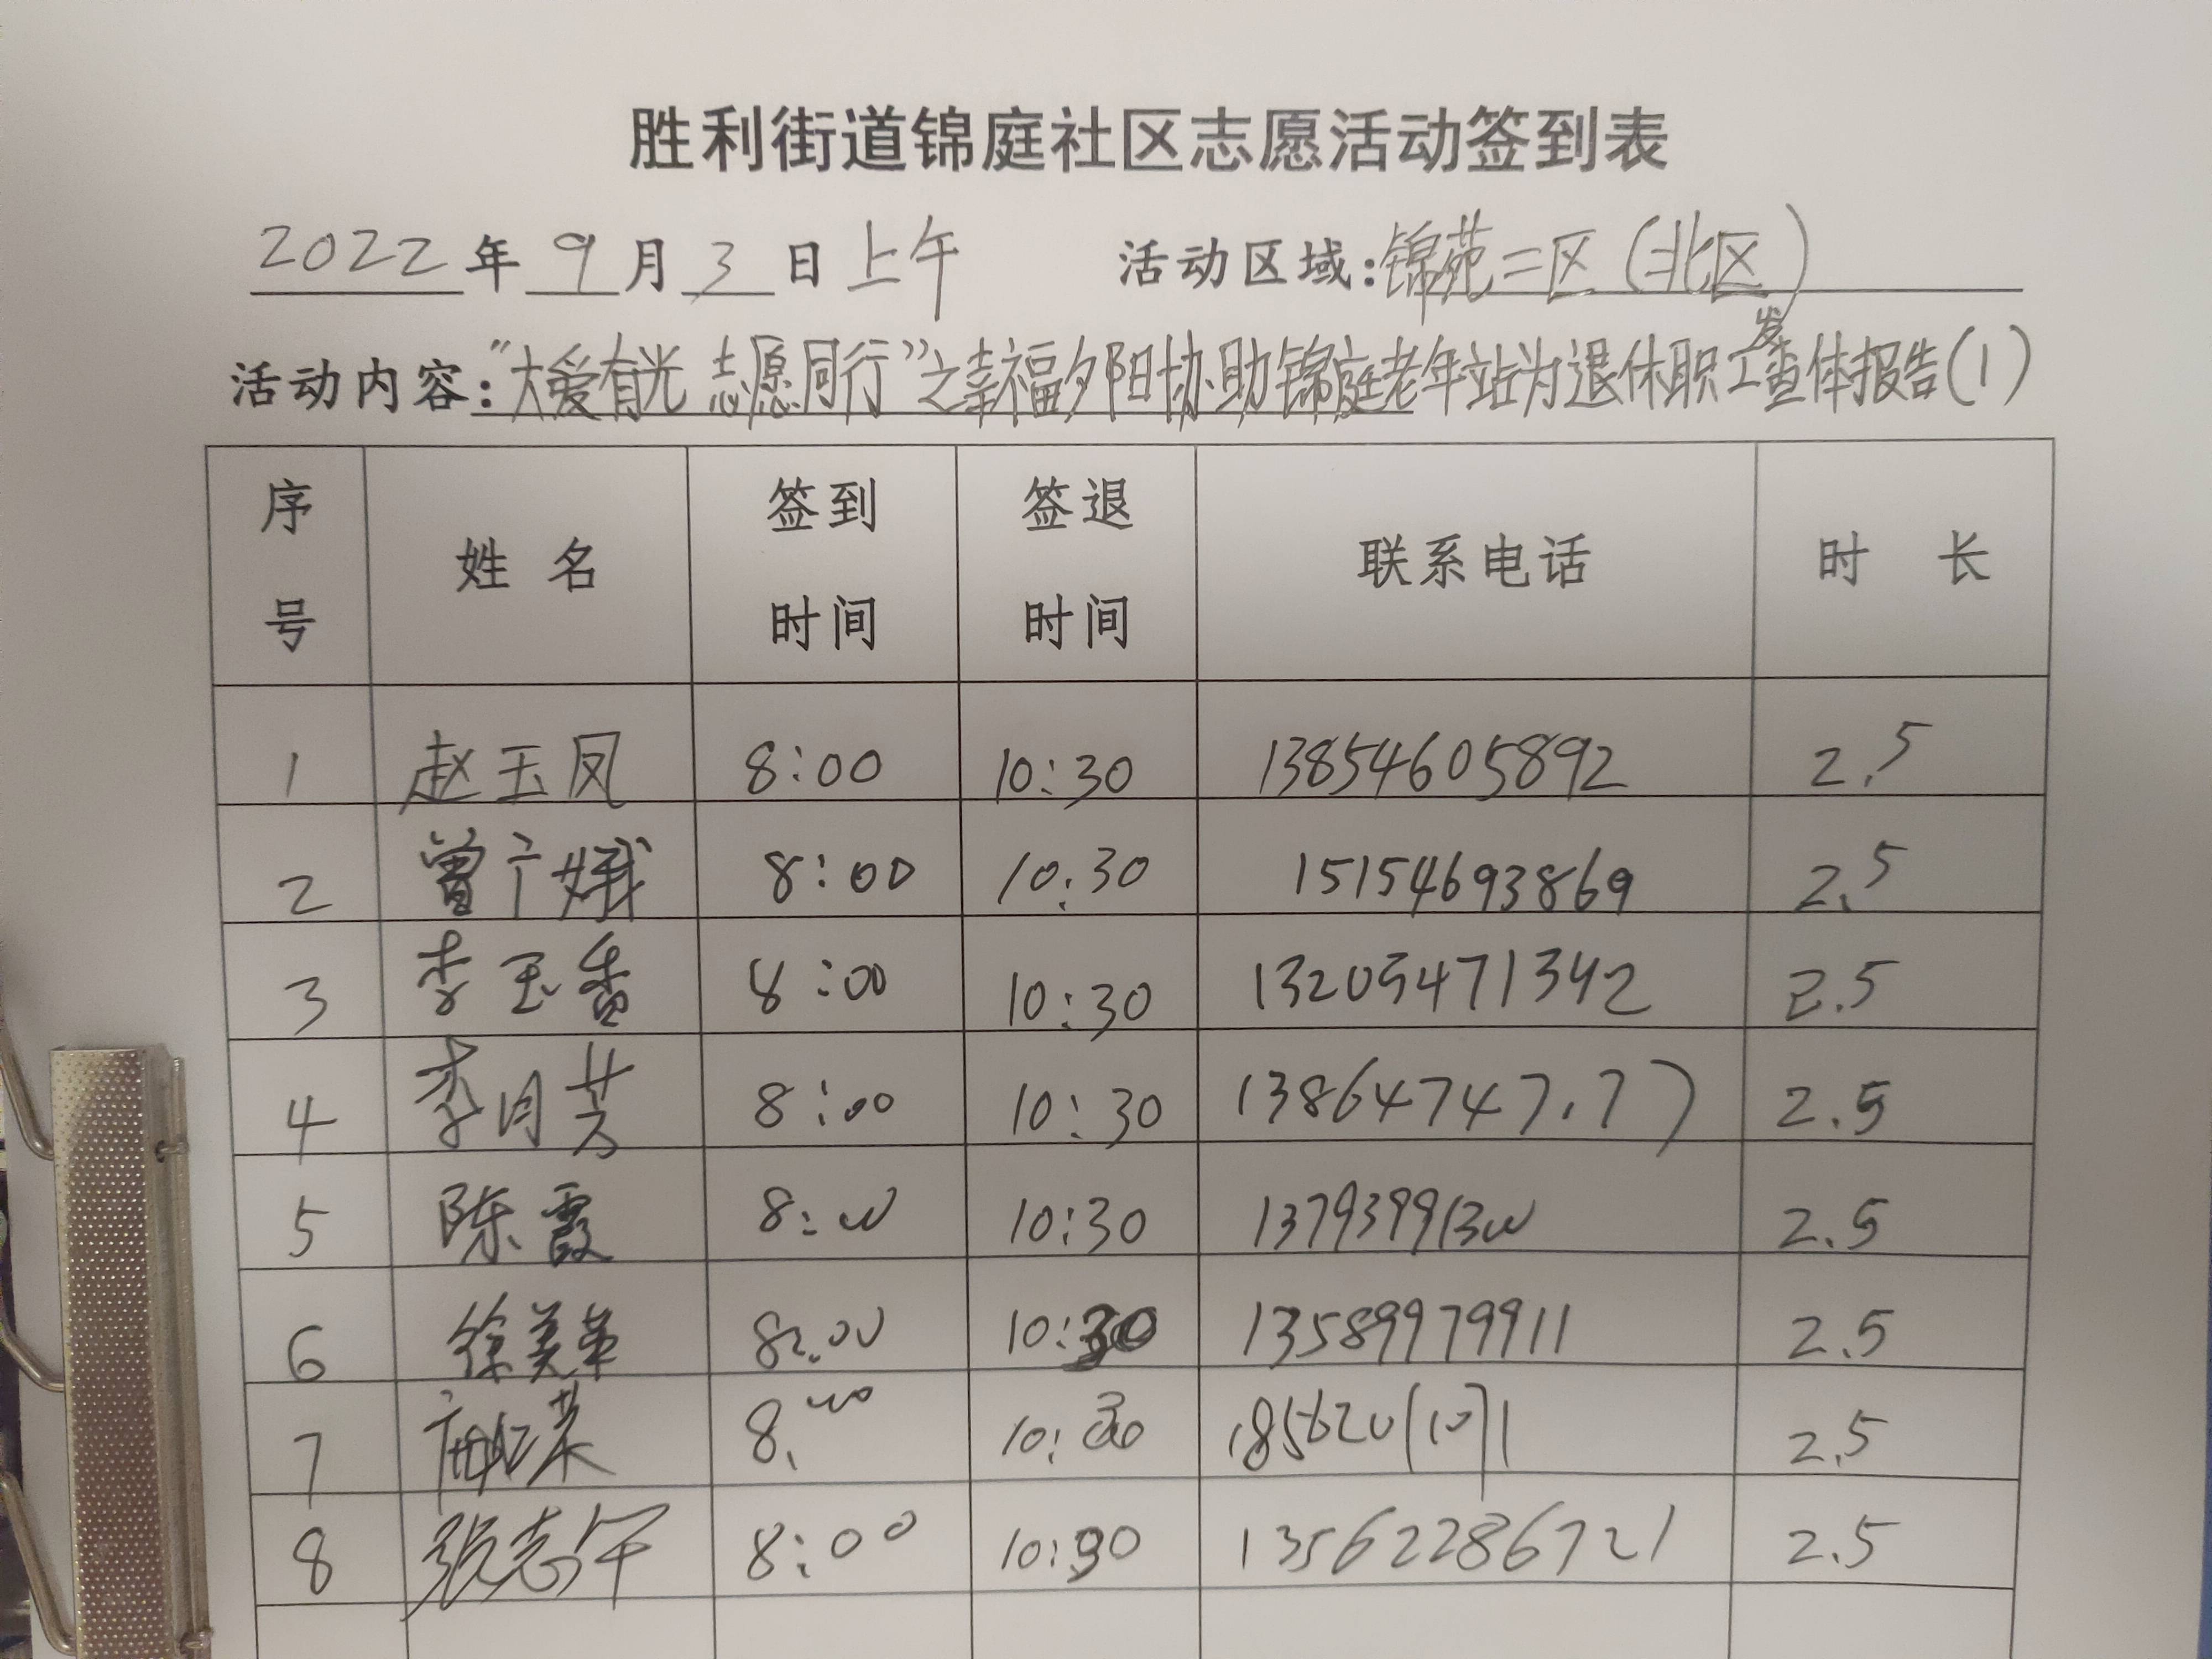 胜利街道锦庭社区志愿活动签到表
2022年9月3日上午 活动区域:锦苑二区(北区)
活动内容:"大爱有光 志愿同行"之幸福夕阳协助锦庭老年站为退休职工发查体报告(1)
序号 姓名 签到时间 签退时间 联系电话 时长
1 赵玉凤 8:00 10:30 13854605892 2.5
2 曾广娥 8:00 10:30 15154693869 2.5
3 李玉香 8:00 10:30 13205471342 2.5
4 李月芳 8:00 10:30 2.5
5 陈霞 8:00 10:30 13793991300 2.5
6 徐美革 8:00 10:30 13589979911 2.5
7 8:00 10:30 2.5
8 8:00 10:30 13562286721 2.5